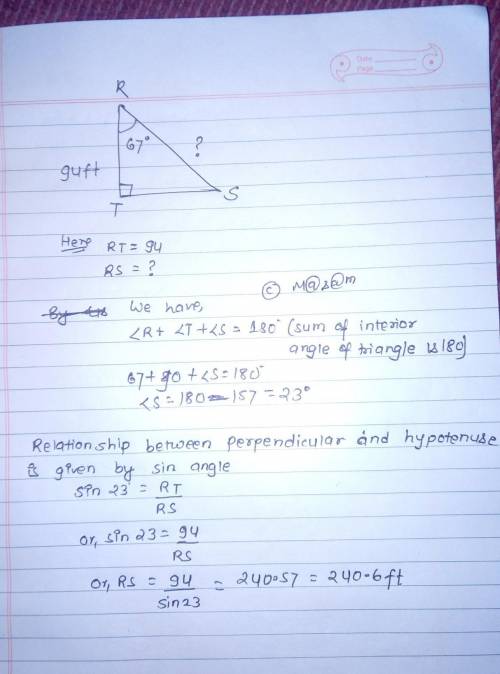 Date
Page
R
67°
?
94ft
T
S
Here RT = 94
RS = ?
© M@s@m
We have,
∠R + ∠T + ∠S = 180° (sum of interior
angle of triangle is 180]
67 + 90 + ∠S = 180°
∠S = 180 - 157 = 23°
Relationship between perpendicular and hypotenuse
is given by sin angle
sin 23° = RT
RS
or, sin 23 = 94
RS
or, RS = 94 = 240.57 = 240.6 ft
sin23